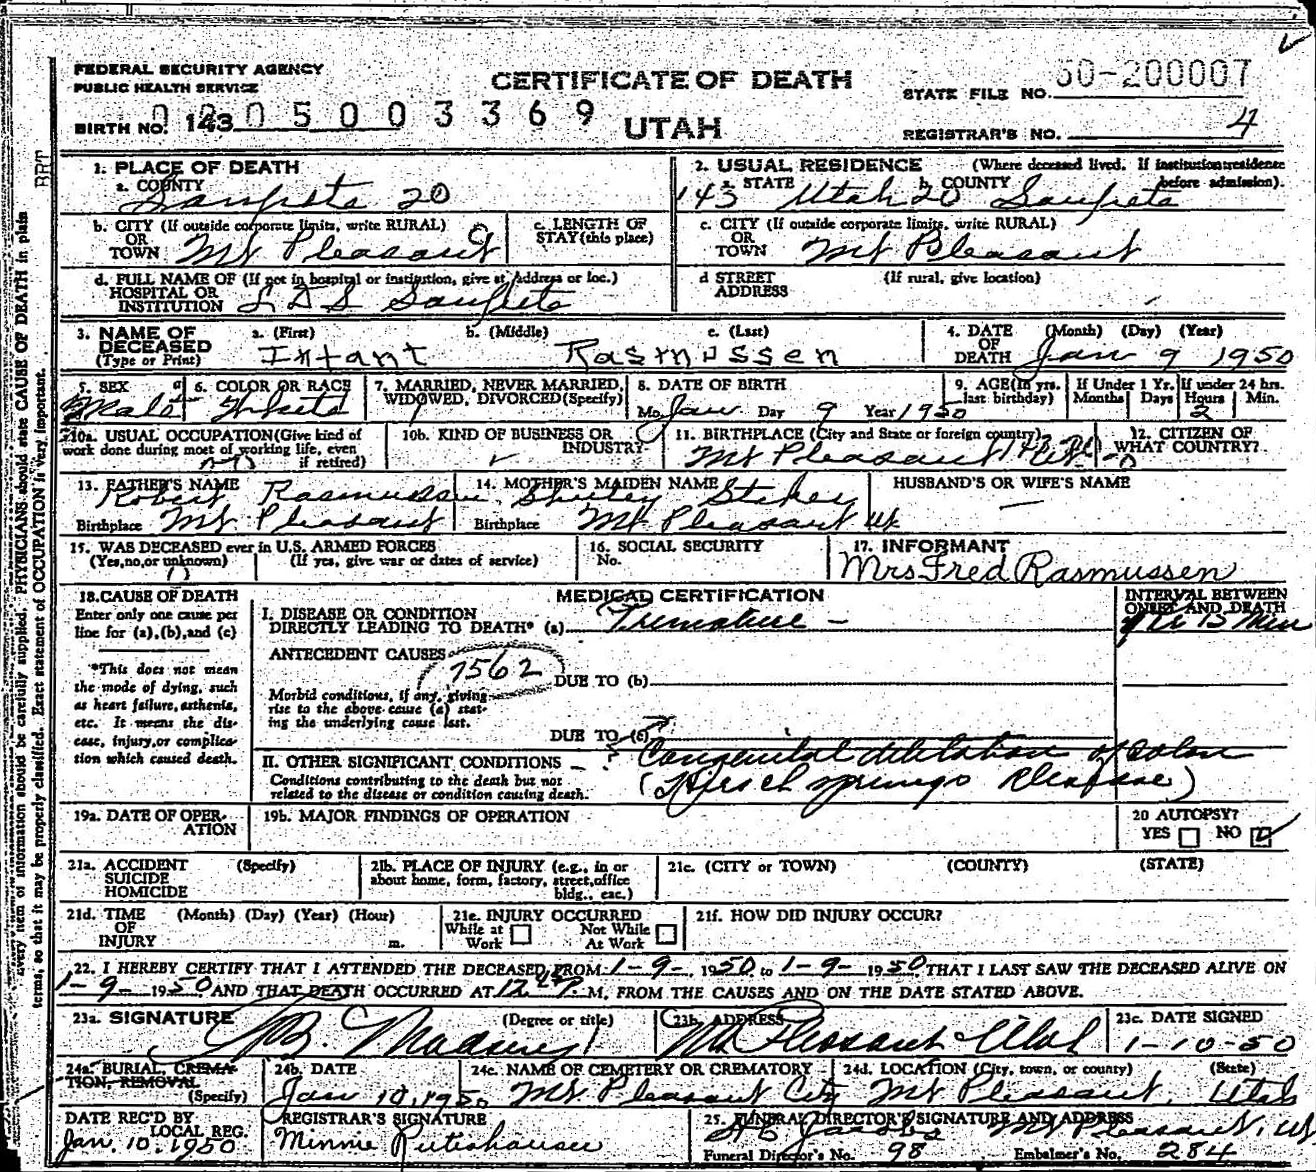 FEDERAL SECURITY AGENCY
PUBLIC HEALTH SERVICE
CERTIFICATE OF DEATH
STATE FILE NO. 50-200007
BIRTH NO. 143 0 5 0 0 0 3 3 6 9
UTAH
REGISTRAR'S NO. 4
1. PLACE OF DEATH
a. COUNTY Sanpete 20
2. USUAL RESIDENCE (Where deceased lived. If institution: residence before admission).
143 a. STATE Utah 20 b. COUNTY Sanpete
b. CITY (If outside corporate limits, write RURAL) OR TOWN Mt Pleasant
c. LENGTH OF STAY (this place)
c. CITY (If outside corporate limits, write RURAL) OR TOWN Mt Pleasant
d. FULL NAME OF (If not in hospital or institution, give st. address or loc.) HOSPITAL OR INSTITUTION LDS Sanpete
d STREET ADDRESS (If rural, give location)
3. NAME OF DECEASED (Type or Print) a. (First) Infant b. (Middle) c. (Last) Rasmussen
4. DATE OF DEATH (Month) (Day) (Year) Jan 9 1950
5. SEX Male
6. COLOR OR RACE White
7. MARRIED, NEVER MARRIED, WIDOWED, DIVORCED (Specify)
8. DATE OF BIRTH Mo. Jan Day 9 Year 1950
9. AGE (In yrs. last birthday) If Under 1 Yr. Months Days If under 24 hrs. Hours 2 Min.
10a. USUAL OCCUPATION (Give kind of work done during most of working life, even if retired)
10b. KIND OF BUSINESS OR INDUSTRY
11. BIRTHPLACE (City and State or foreign country) Mt Pleasant 143
12. CITIZEN OF WHAT COUNTRY?
13. FATHER'S NAME Robert Rasmussen
Birthplace Mt Pleasant
14. MOTHER'S MAIDEN NAME Shirley
Birthplace Mt Pleasant Ut
HUSBAND'S OR WIFE'S NAME
15. WAS DECEASED ever in U.S. ARMED FORCES (Yes, no, or unknown) (If yes, give war or dates of service)
16. SOCIAL SECURITY No.
17. INFORMANT Mrs Fred Rasmussen
18. CAUSE OF DEATH
Enter only one cause per line for (a), (b), and (c)
*This does not mean the mode of dying, such as heart failure, asthenia, etc. It means the disease, injury, or complication which caused death.
MEDICAL CERTIFICATION
INTERVAL BETWEEN ONSET AND DEATH
I. DISEASE OR CONDITION DIRECTLY LEADING TO DEATH* (a) Premature -
ANTECEDENT CAUSES 7562
DUE TO (b)
Morbid conditions, if any, giving rise to the above cause (a) stating the underlying cause last.
DUE TO (c)
II. OTHER SIGNIFICANT CONDITIONS
Conditions contributing to the death but not related to the disease or condition causing death.
Congenital dilitation of Colon
(Hirschsprungs Disease)
19a. DATE OF OPERATION
19b. MAJOR FINDINGS OF OPERATION
20 AUTOPSY? YES NO
21a. ACCIDENT SUICIDE HOMICIDE (Specify)
21b. PLACE OF INJURY (e.g., in or about home, form, factory, street, office bldg., exc.)
21c. (CITY or TOWN) (COUNTY) (STATE)
21d. TIME OF INJURY (Month) (Day) (Year) (Hour) m.
21e. INJURY OCCURRED While at Work Not While At Work
21f. HOW DID INJURY OCCUR?
22. I HEREBY CERTIFY THAT I ATTENDED THE DECEASED FROM 1-9-, 1950 to 1-9- 1950 THAT I LAST SAW THE DECEASED ALIVE ON
1-9- 1950 AND THAT DEATH OCCURRED AT 12 P. M, FROM THE CAUSES AND ON THE DATE STATED ABOVE.
23a. SIGNATURE (Degree or title) Madsen
23b. ADDRESS Mt Pleasant Utah
23c. DATE SIGNED 1-10-50
24a. BURIAL, CREMATION, REMOVAL (Specify)
24b. DATE Jan 10, 1950
24c. NAME OF CEMETERY OR CREMATORY Mt Pleasant City
24d. LOCATION (City, town, or county) (State) Mt Pleasant, Utah
DATE REC'D BY LOCAL REG. Jan. 10, 1950
REGISTRAR'S SIGNATURE Minnie
25. FUNERAL DIRECTOR'S SIGNATURE AND ADDRESS Jacobs Mt Pleasant, Ut
Funeral Director's No. 98
Embalmer's No. 284
every item of information should be carefully supplied. PHYSICIANS should state CAUSE OF DEATH in plain
terms, so that it may be properly classified. Exact statement of OCCUPATION is very important.